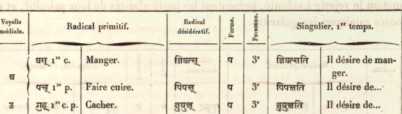 Voyelle médiale. Radical primitif. Radical désidératif. Forme. Personne. Singulier, 1er temps.
अ घस् 1er c. Manger. जिघत्स् प 3e जिघत्सति Il désire de manger.
पच् 1er p. Faire cuire. पिपक्ष् प 3e पिपक्षति Il désire de...
उ गुह् 1er c. p. Cacher. जुघुक्ष् प 3e जुघुक्षति Il désire de...